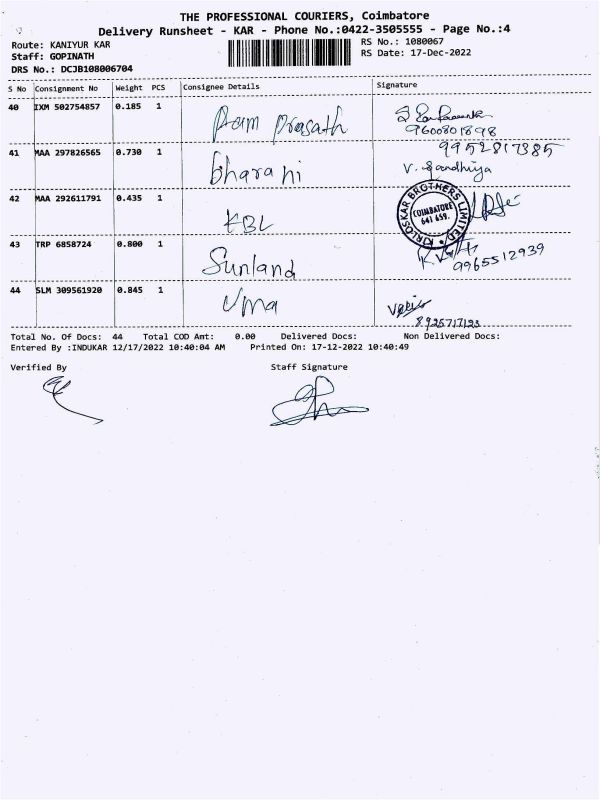 THE PROFESSIONAL COURIERS, Coimbatore
Delivery Runsheet - KAR - Phone No.:0422-3505555 - Page No.:4
Route: KANIYUR KAR
RS No.: 1080067
Staff: GOPINATH
RS Date: 17-Dec-2022
DRS No.: DCJB108006704
S No Consignment No Weight PCS Consignee Details Signature
40 IXM 502754857 0.185 1 Ram Prasath
9600801898
41 MAA 297826565 0.730 1 Bharani 9952817385
V. Sandhiya
42 MAA 292611791 0.435 1 KBL
KIRLOSKAR BROTHERS LIMITED
COIMBATORE
641 659.
43 TRP 6858724 0.800 1 Sunland
9965512939
44 SLM 309561920 0.845 1 Uma
8925717123
Total No. Of Docs: 44 Total COD Amt: 0.00 Delivered Docs: Non Delivered Docs:
Entered By :INDUKAR 12/17/2022 10:40:04 AM Printed On: 17-12-2022 10:40:49
Verified By Staff Signature